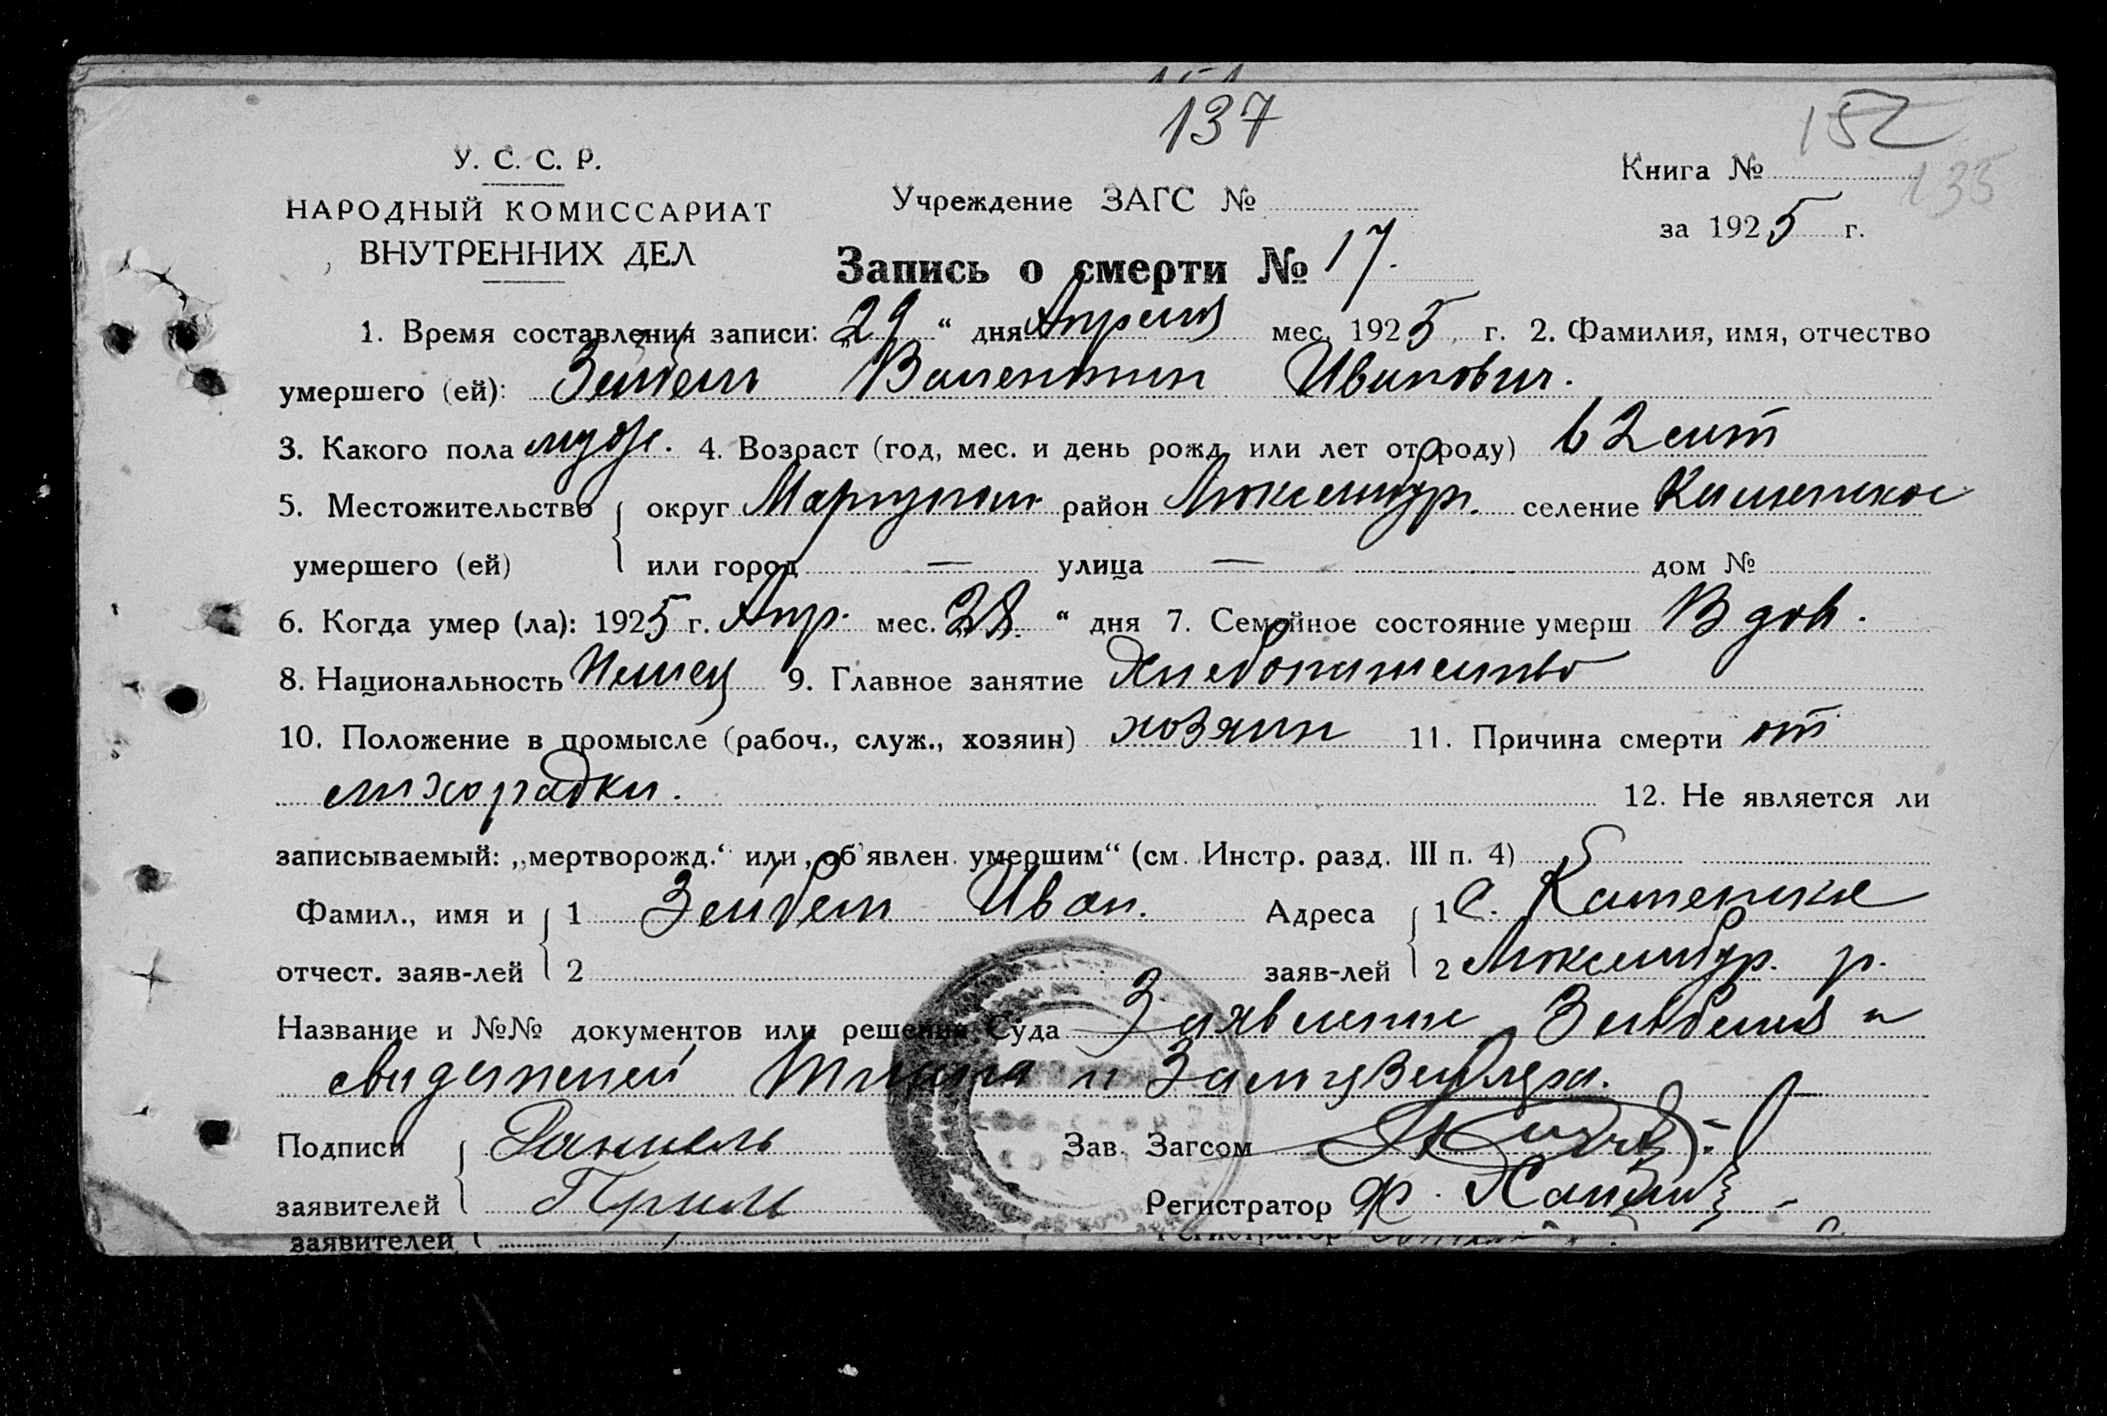 137
152
135
У. С. С. Р.
НАРОДНЫЙ КОМИССАРИАТ
ВНУТРЕННИХ ДЕЛ
Учреждение ЗАГС №
Книга №
за 1925 г.
Запись о смерти № 17.
1. Время составления записи: „29“ дня Апреля мес. 1925 г. 2. Фамилия, имя, отчество
умершего (ей): Зейбель Валентин Иванович.
3. Какого пола муж. 4. Возраст (год, мес. и день рожд. или лет от роду) 62 лет
5. Местожительство округ Мариуполь район Люксембр. селение Каменское
умершего (ей) или город — улица — дом №
6. Когда умер (ла): 1925 г. Апр. мес. „28“ дня 7. Семейное состояние умерш Вдов.
8. Национальность Немец 9. Главное занятие Хлебопашество
10. Положение в промысле (рабоч., служ., хозяин) хозяин 11. Причина смерти от
лихорадки. 12. Не является ли
записываемый: „мертворожд.“ или „об'явлен. умершим“ (см. Инстр. разд. III п. 4)
Фамил., имя и 1 Зейбель Иван. Адреса 1 с. Каменское
отчест. заяв-лей 2 заяв-лей 2 Люксембр. р.
Название и №№ документов или решения Суда Заявление Зейбеля и
свидетелей и
Подписи Зав. Загсом
заявителей Регистратор Ф.
заявителей Регистратор